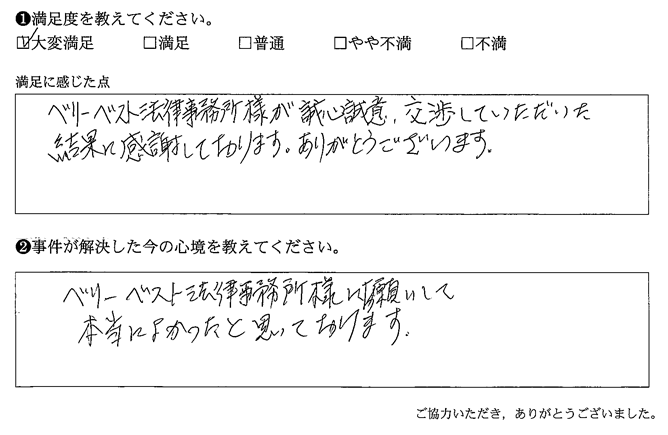 ❶満足度を教えてください。
☑大変満足 □満足 □普通 □やや不満 □不満
満足に感じた点
ベリーベスト法律事務所様が誠心誠意、交渉していただいた
結果に感謝しております。ありがとうございます。
❷事件が解決した今の心境を教えてください。
ベリーベスト法律事務所様に願いして
本当によかったと思っております。
ご協力いただき，ありがとうございました。